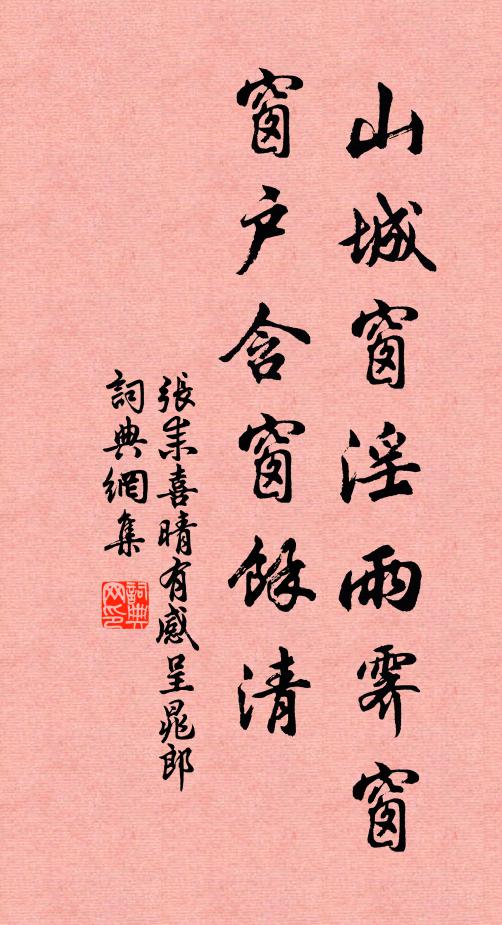 山城窗淫雨霁窗
窗户含窗餘清
張耒喜晴有感呈晁郎
詞典網集
詞典網印